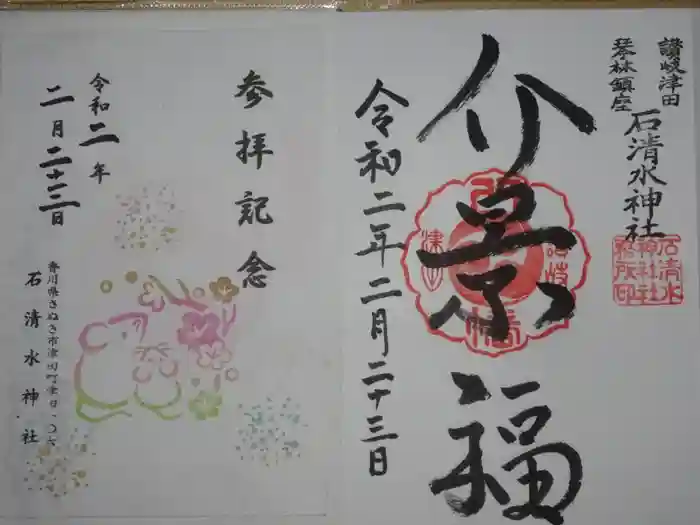 讃岐津田
琴林鎮座
石清水神社
石清水
神社社
務所印
介景福
令和二年二月二十三日
参拝記念
令和二年
二月二十三日
香川県さぬき市津田町津田一〇六
石清水神社